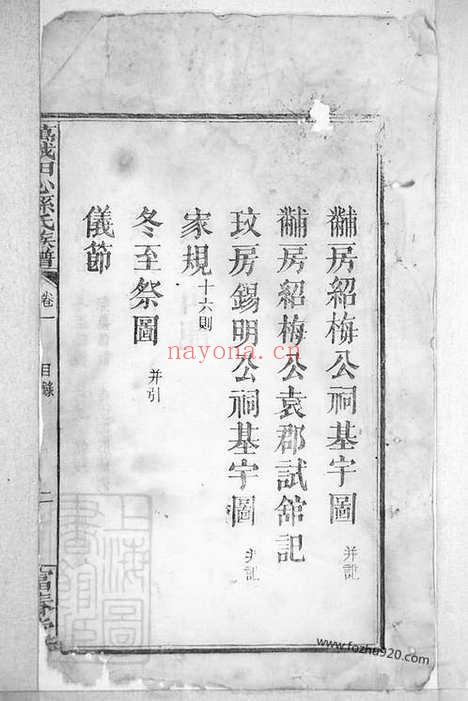 黼房紹梅公祠基宇圖 并記
黼房紹梅公袁郡試舘記
玟房錫明公祠基宇圖 并記
家規 十六則
冬至祭圖 并引
儀節
萬載田心孫氏族譜
卷一
目錄
二
富春堂
上海圖書館藏
nayona.cn
www.fozhu920.com